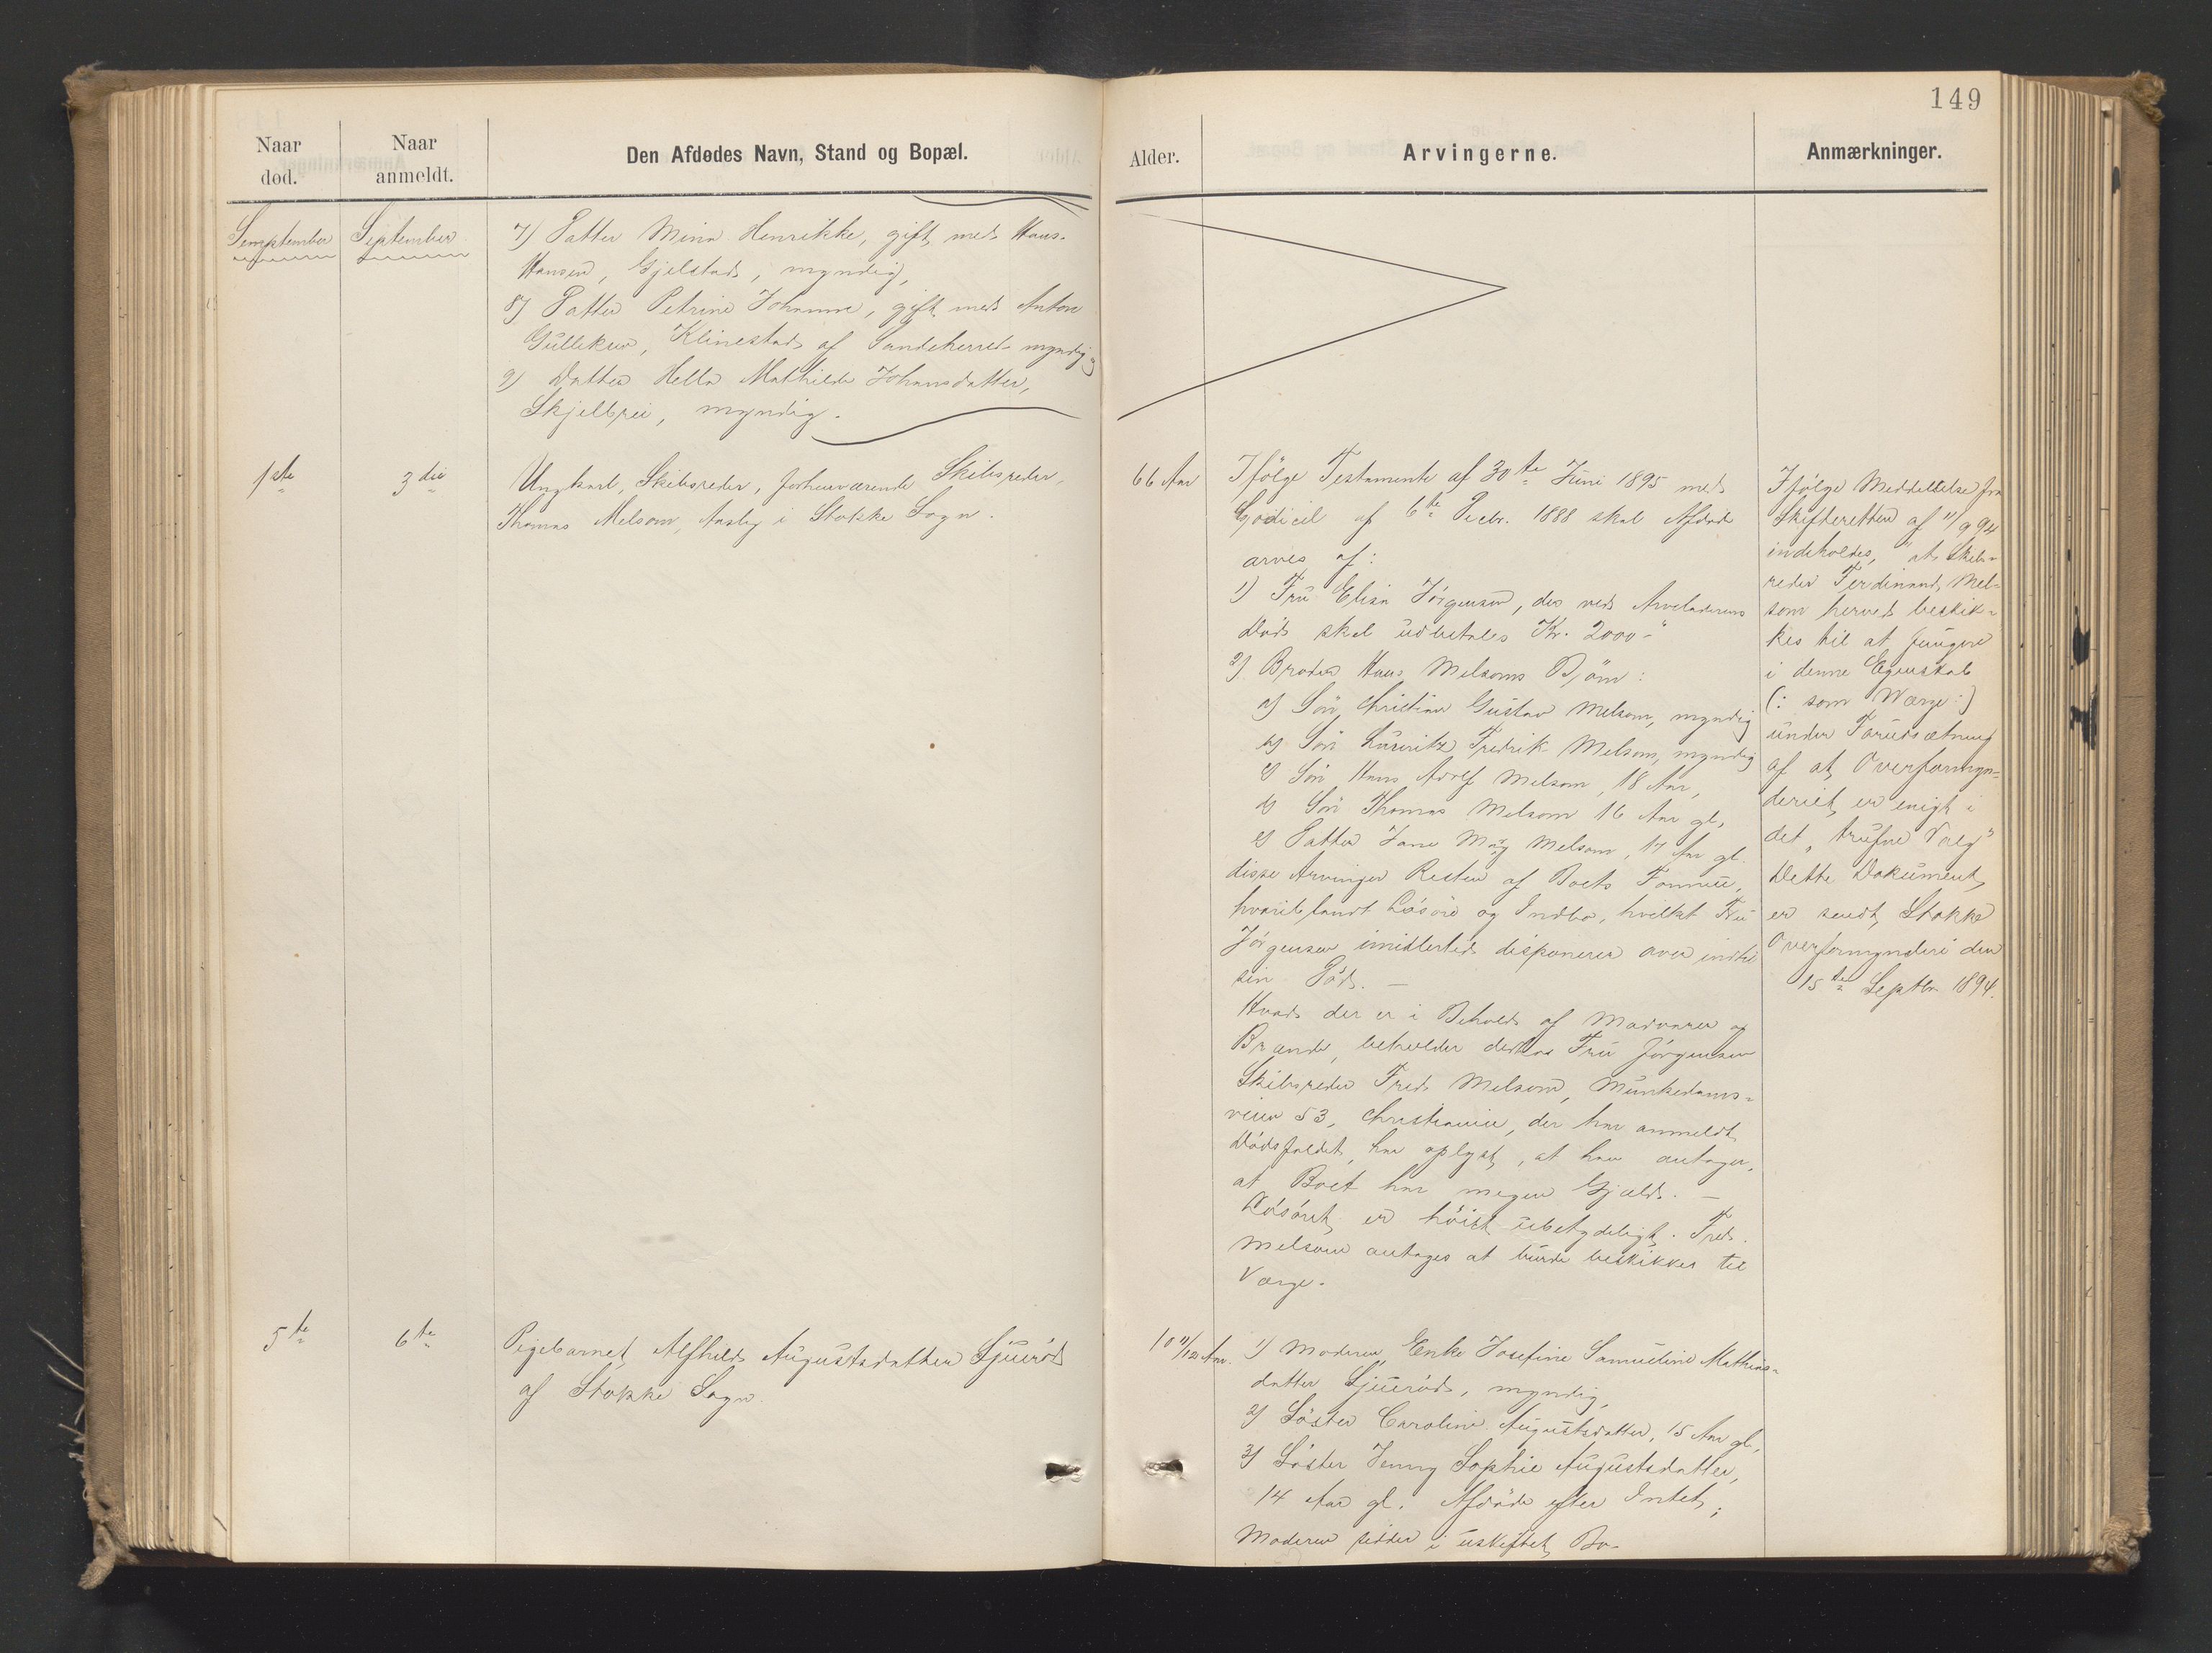 149
Naar død.
Naar anmeldt.
Den Afdødes Navn, Stand og Bopæl.
Alder.
Arvingerne.
Anmærkninger.
Semptember
September
7) Datter Mina Henrikke, gift med Hans
Hansen, Gjelstad, myndig,
8) Datter Petrine Johanne, gift med Anton
Gulliksen, Klinestad af Sandeherred myndig
9) Datter Hella Mathilde Johansdatter,
Skjelbrei, myndig.
1ste
3die
Ungkarl, Skibsreder, forhenværende Skibsreder,
Thomas Melsom, Aasly i Stokke Sogn.
66 Aar
Ifølge Testamente af 30te Juni 1895 med
Codicil af 6te Decbr. 1888 skal Afdøde
arves af:
1) Fru Elisa Jörgensen, der ved Arveladerens
Död skal udbetales Kr. 2000-"
2) Broder Hans Melsoms Börn:
a) Sön Christian Gustav Melsom, myndig
b) Sön Lauritz Fredrik Melsom, myndig
c) Sön Hans Adolf Melsom, 18 Aar,
d) Sön Thomas Melsom 16 Aar gl,
e) Datter Jane May Melsom, 17 Aar gl.
disse Arvinger Resten af Boets Formue,
hvoriblandt Lösöre og Indbo, hvilket Fru
Jörgensen imidlertid disponerer over indtil
sin Död. —
Hvad der er i Behold af Madvarer og
Brænde, beholder derhos Fru Jörgensen
Skibsreder Fred. Melsom, Munkedams-
veien 53, Christiania, der har anmeldt
Dödsfaldet, har oplyst, at han antager,
at Boet har megen Gjæld. —
Lösöret er höist ubetydeligt. Fred.
Melsom antages at burde beskikkes til
Værge.
Ifølge Meddelelse fra
Skifteretten af 11/9 94
indeholdes, "at Skibs-
reder Ferdinand Mel-
som herved beskik-
kes til at fungere
i denne Egenskab
(: som Værge :)
under Forudsætning
af at Overformyn-
deriet er enigt i
det trufne Valg"
Dette Dokument
er sendt Stokke
Overformynderi den
15de Septbr 1894.
5te
6te
Pigebarnet Alfhild Augustsdatter Sjuerød
af Stokke Sogn.
10 11/12 Aar.
1) Moderen Enke Josefine Samueline Mathias-
datter Sjueröd, myndig,
2) Söster Caroline Augustsdatter, 15 Aar gl,
3) Söster Jenny Sophie Augustsdatter,
14 Aar gl. Afdöde efter Intet;
Moderen sidder i uskiftet Bo-